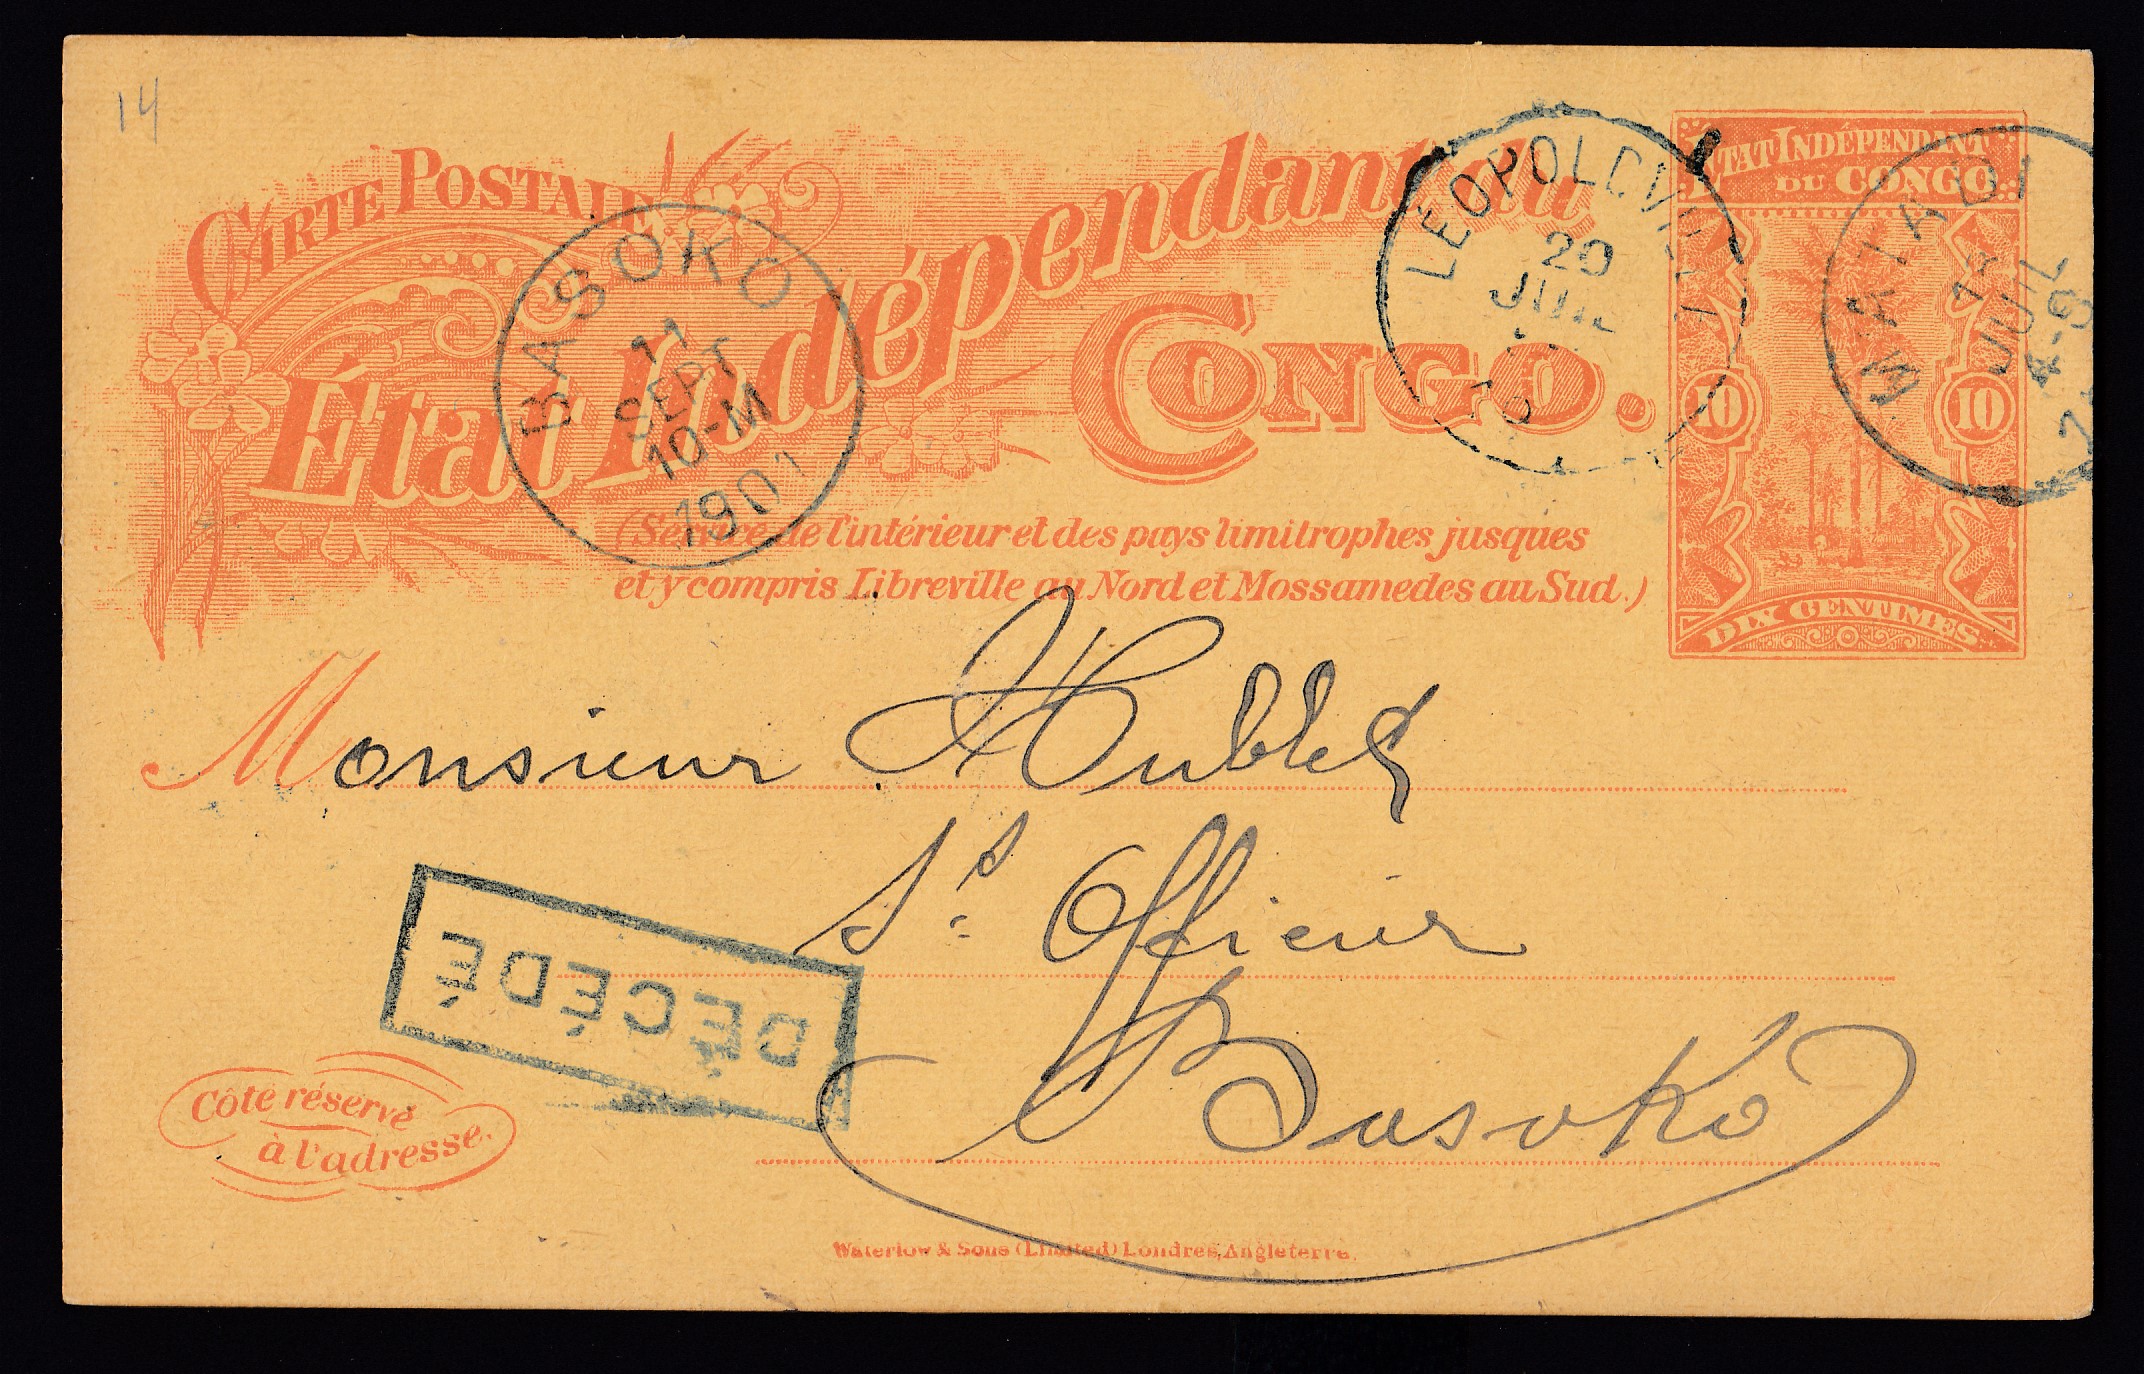 14
CARTE POSTALE
État Indépendant du
CONGO.
(Service de l'intérieur et des pays limitrophes jusques
et y compris Libreville au Nord et Mossamedes au Sud.)
BASOKO
11
SEPT
10-M
1901
LÉOPOLDVILLE
20
JUIL
ÉTAT INDÉPENDANT
DU CONGO
10
10
DIX CENTIMES
MATADI
JUIL
4-S
Monsieur Hublet
Ss. Officier
Basoko
DÉCÉDÉ
Côté réservé
à l'adresse.
Waterlow & Sons (Limited) Londres, Angleterre.